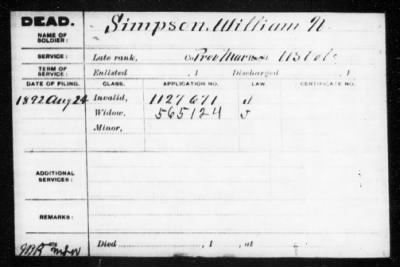 DEAD. Simpson, William N
NAME OF SOLDIER:
SERVICE: Late rank, Prov Marshal US Vols
TERM OF SERVICE: Enlisted , 1 Discharged , 1
DATE OF FILING. CLASS. APPLICATION NO. LAW. CERTIFICATE NO.
1892 Aug 24 Invalid, 1127671
Widow, 565124 J
Minor,
ADDITIONAL SERVICES:
REMARKS:
Died , 1 , at